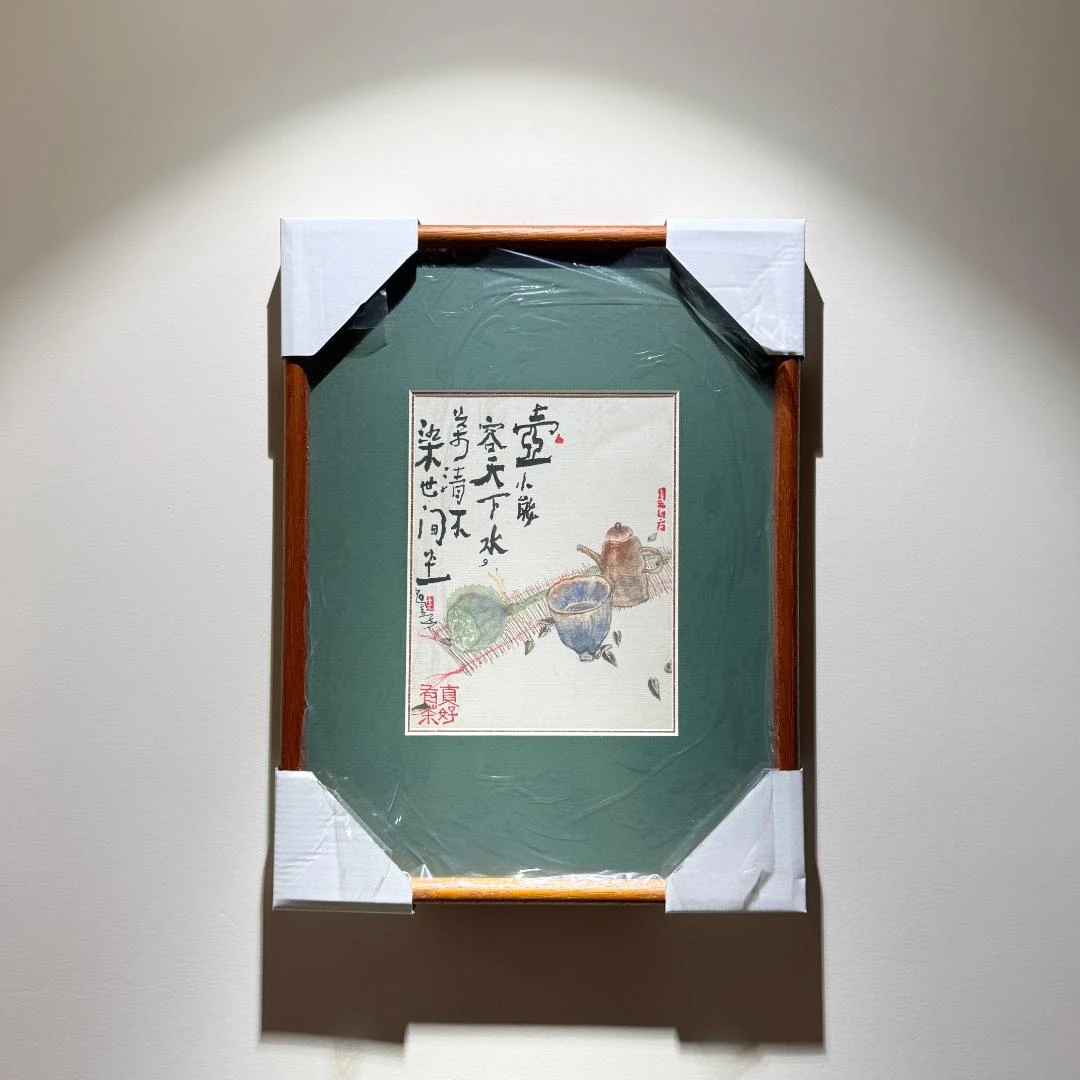 壺小能
容天下水。
茶清不
染世间尘
真好
有茶